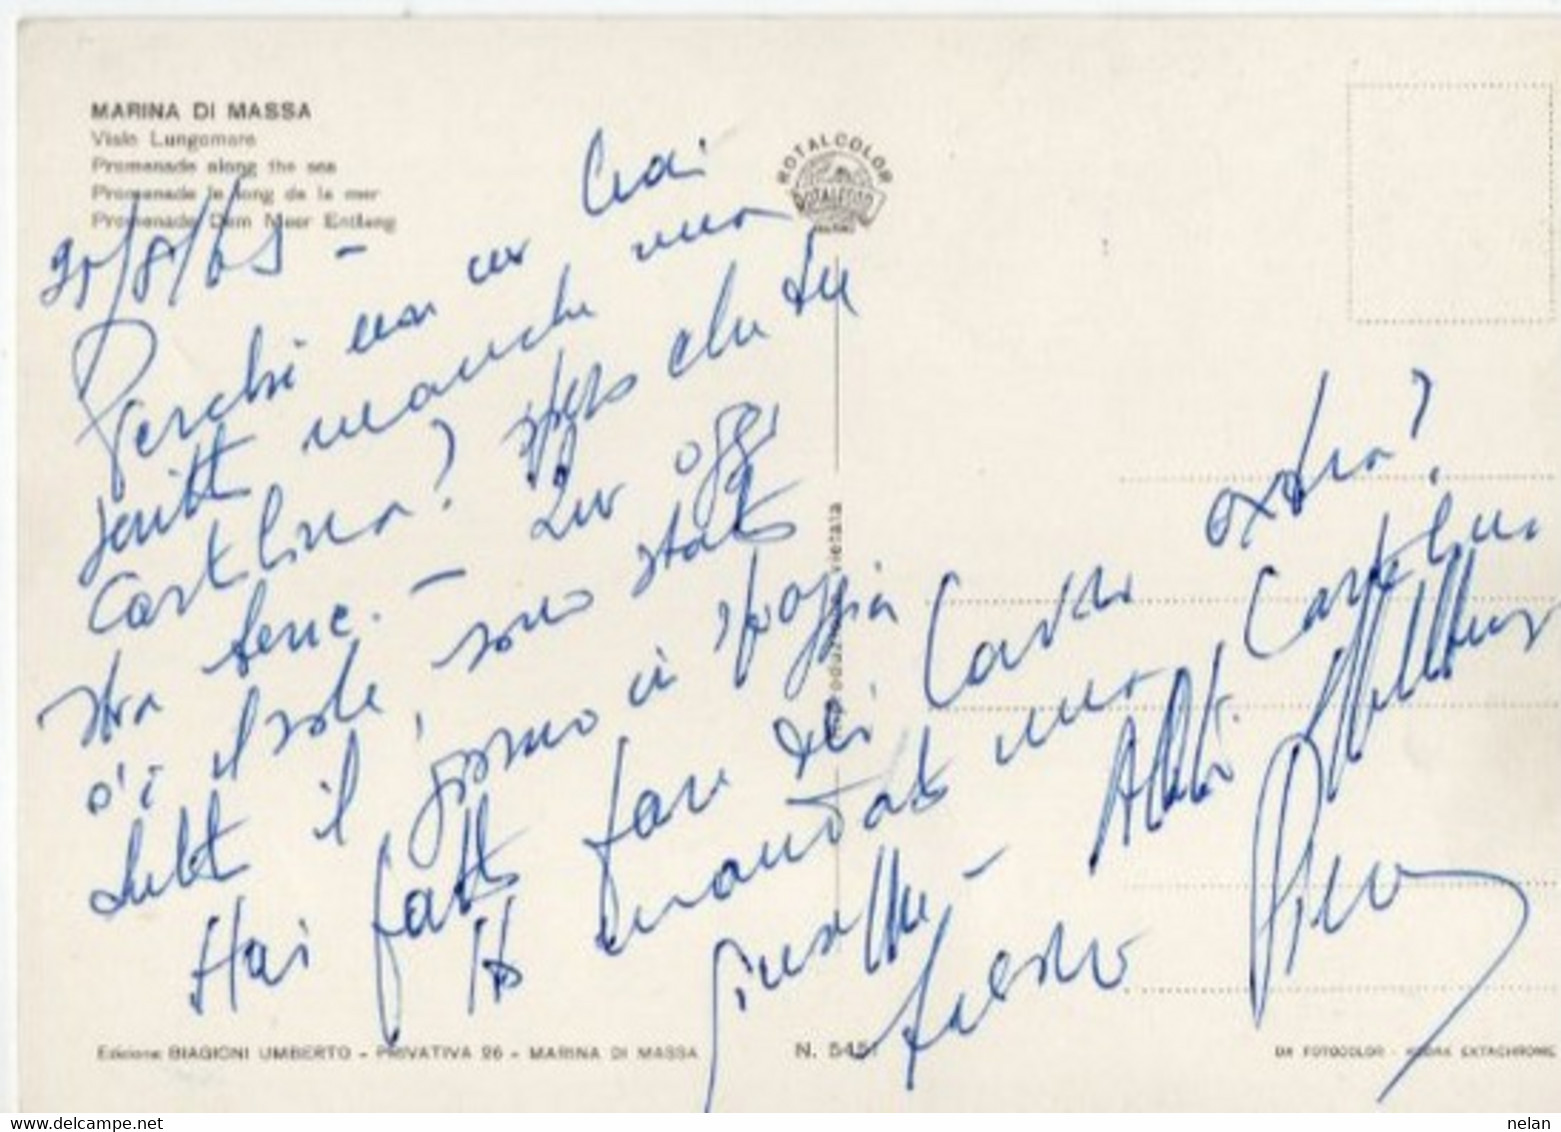 MARINA DI MASSA
Viale Lungomare
Promenade along the sea
Promenade le long de la mer
Promenade Dem Meer Entlang
ROTALCOLOR
ROTALFOTO
MILANO
Perché non mi hai
scritto neanche una
cartolina? spero che tu
stia bene. - Qui oggi
c'è il sole, sono stato
tutto il giorno in spiaggia
Hai fatto fare dei
Ho mandato una cartolina
Riproduzione vietata
Edizione: BIAGIONI UMBERTO - PRIVATIVA 26 - MARINA DI MASSA
N. 5451
DA FOTOCOLOR - KODAK EKTACHROME
www.delcampe.net
nelan